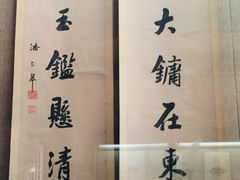 大鏞在東
玉鑑懸清